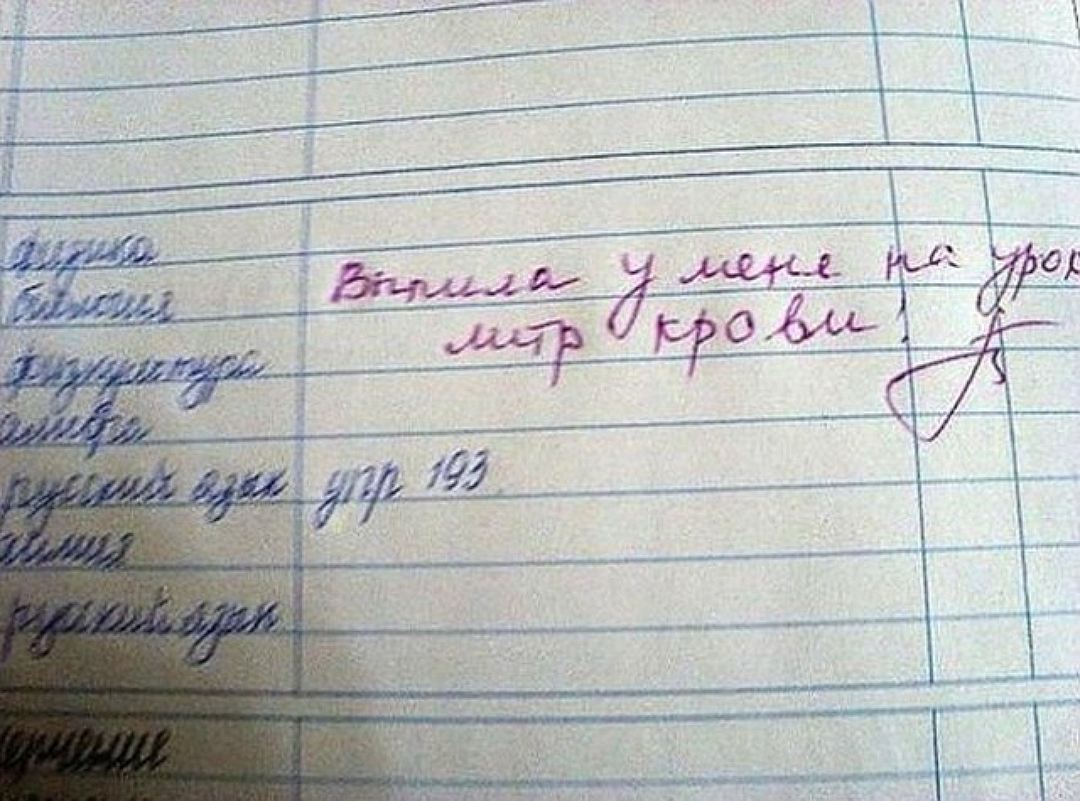 физика
биология
Выпила у меня на урок
литр крови!
физкультура
алгебра
русский язык упр 193
химия
русский язык
ерчение